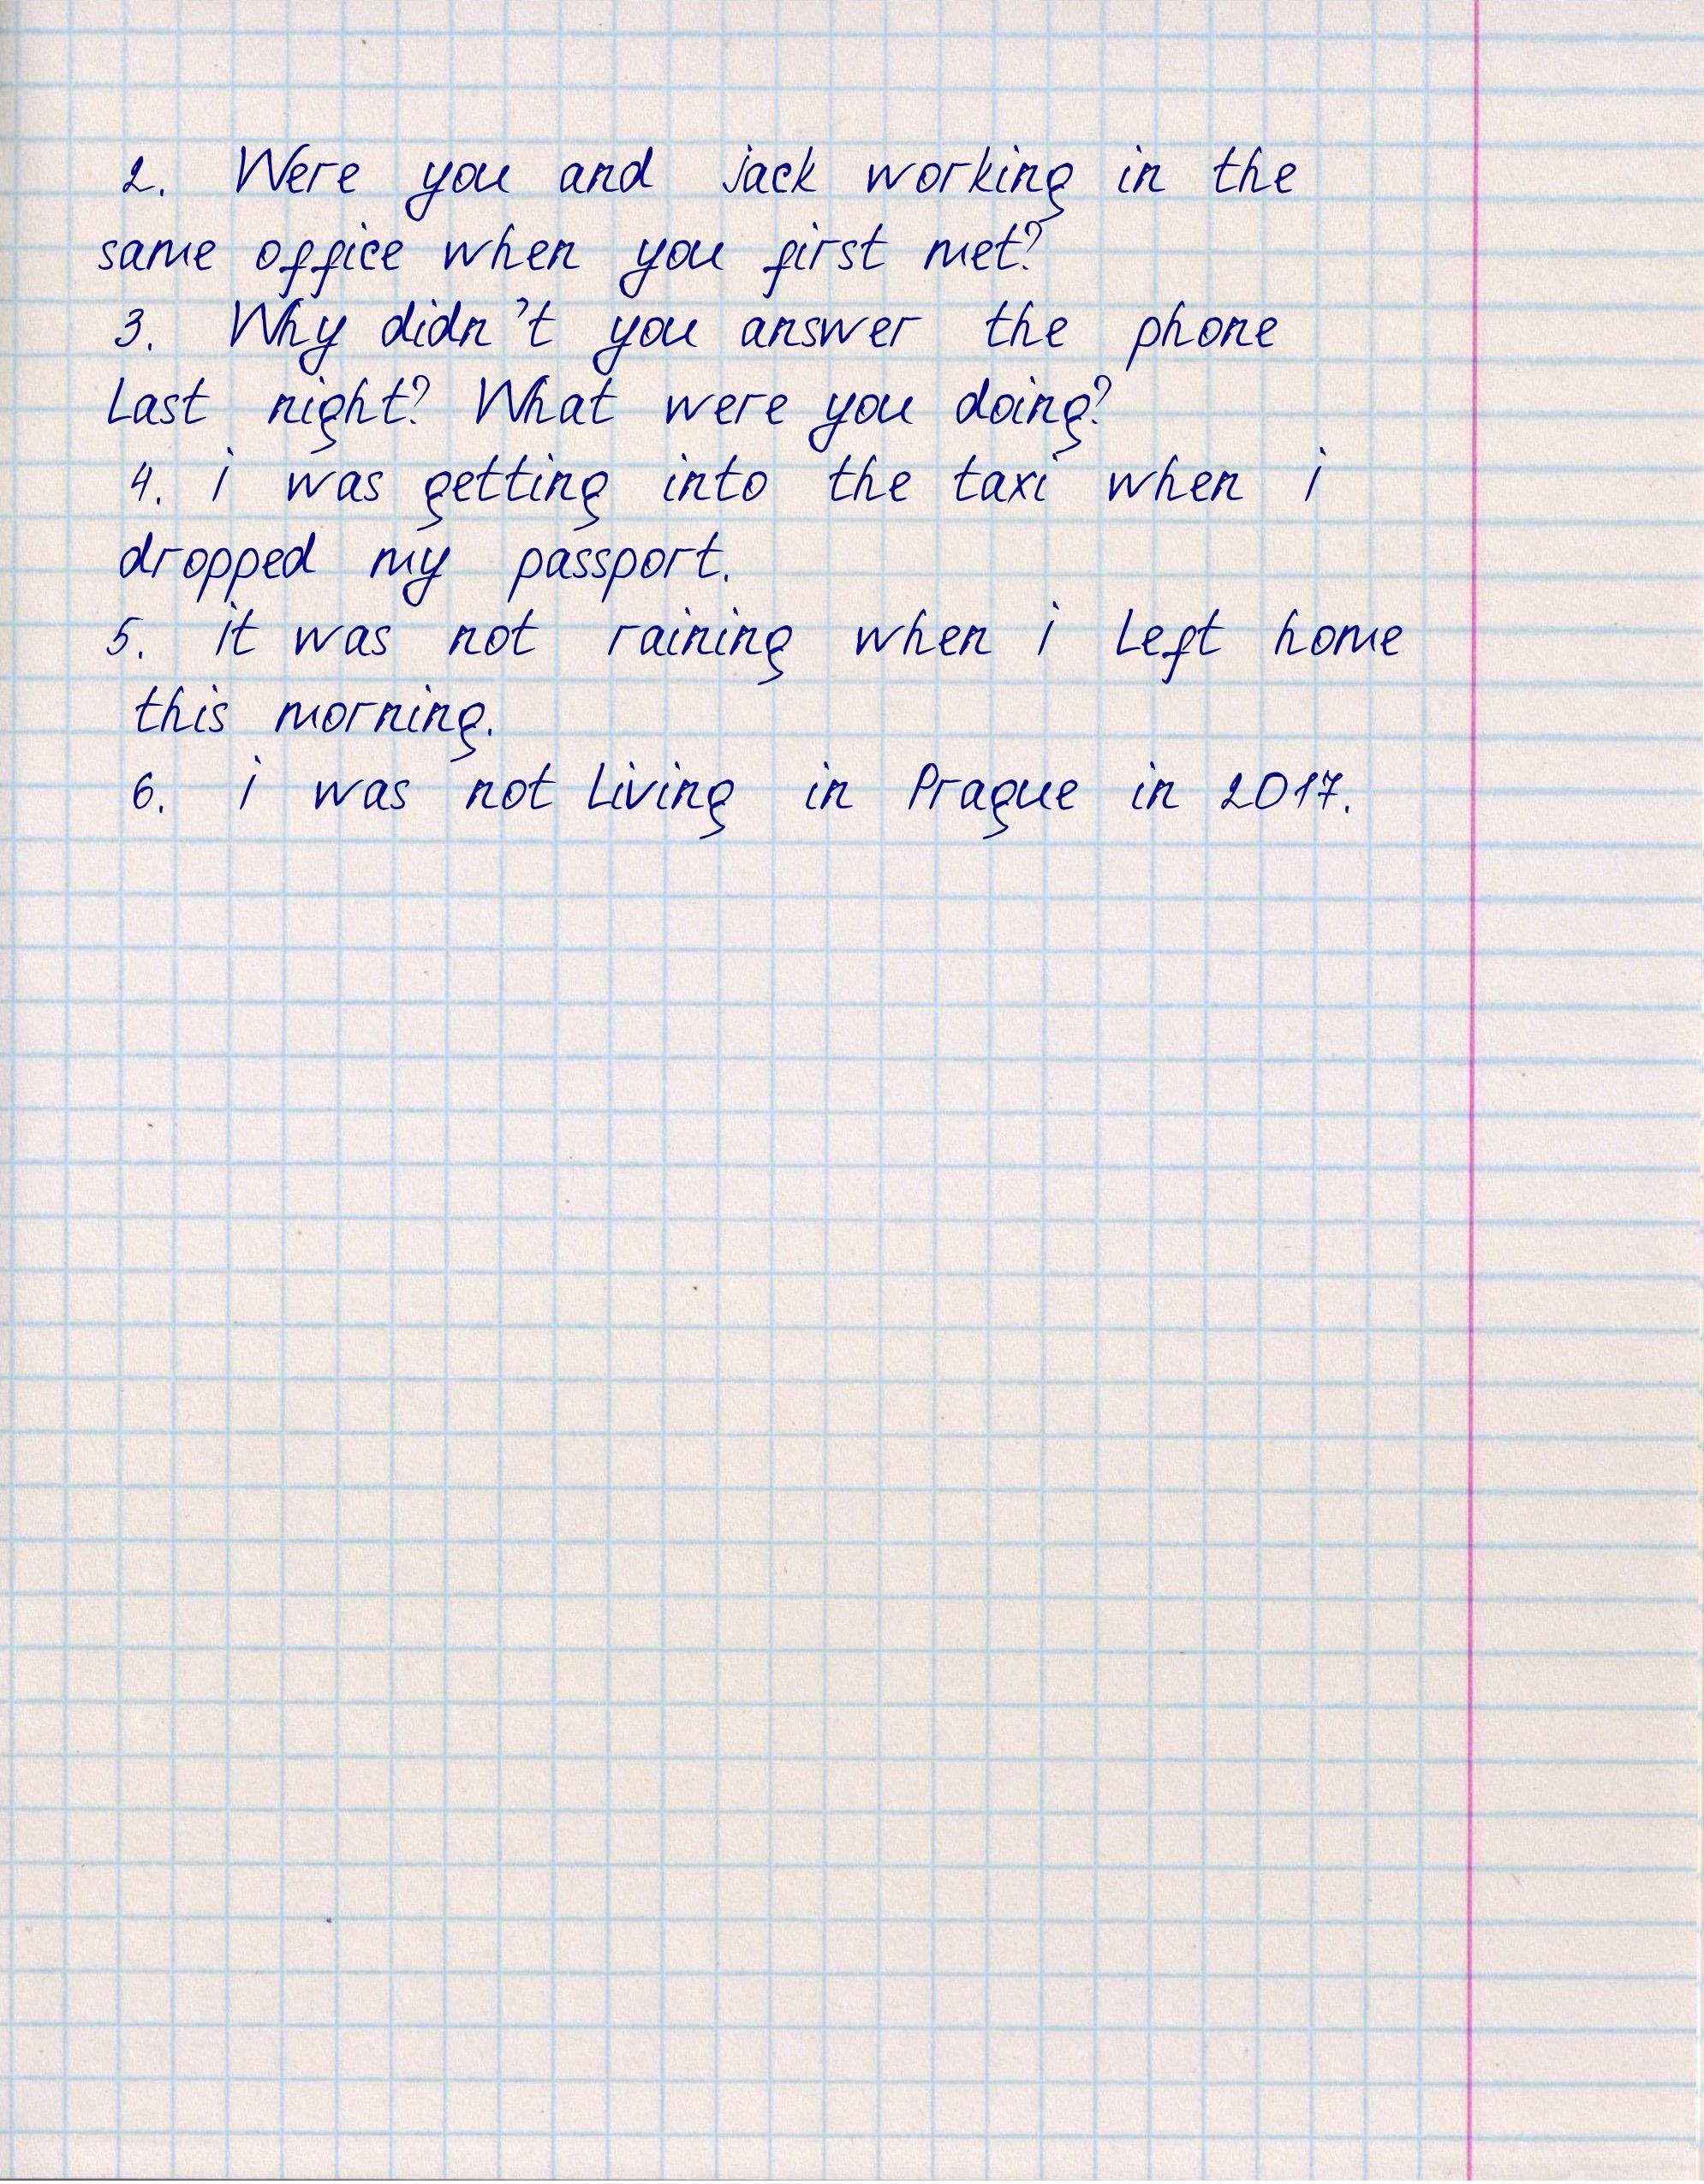 2. Were you and jack working in the
same office when you first met?
3. Why didn't you answer the phone
last night? What were you doing?
4. i was getting into the taxi when i
dropped my passport.
5. it was not raining when i left home
this morning.
6. i was not living in Prague in 2017.